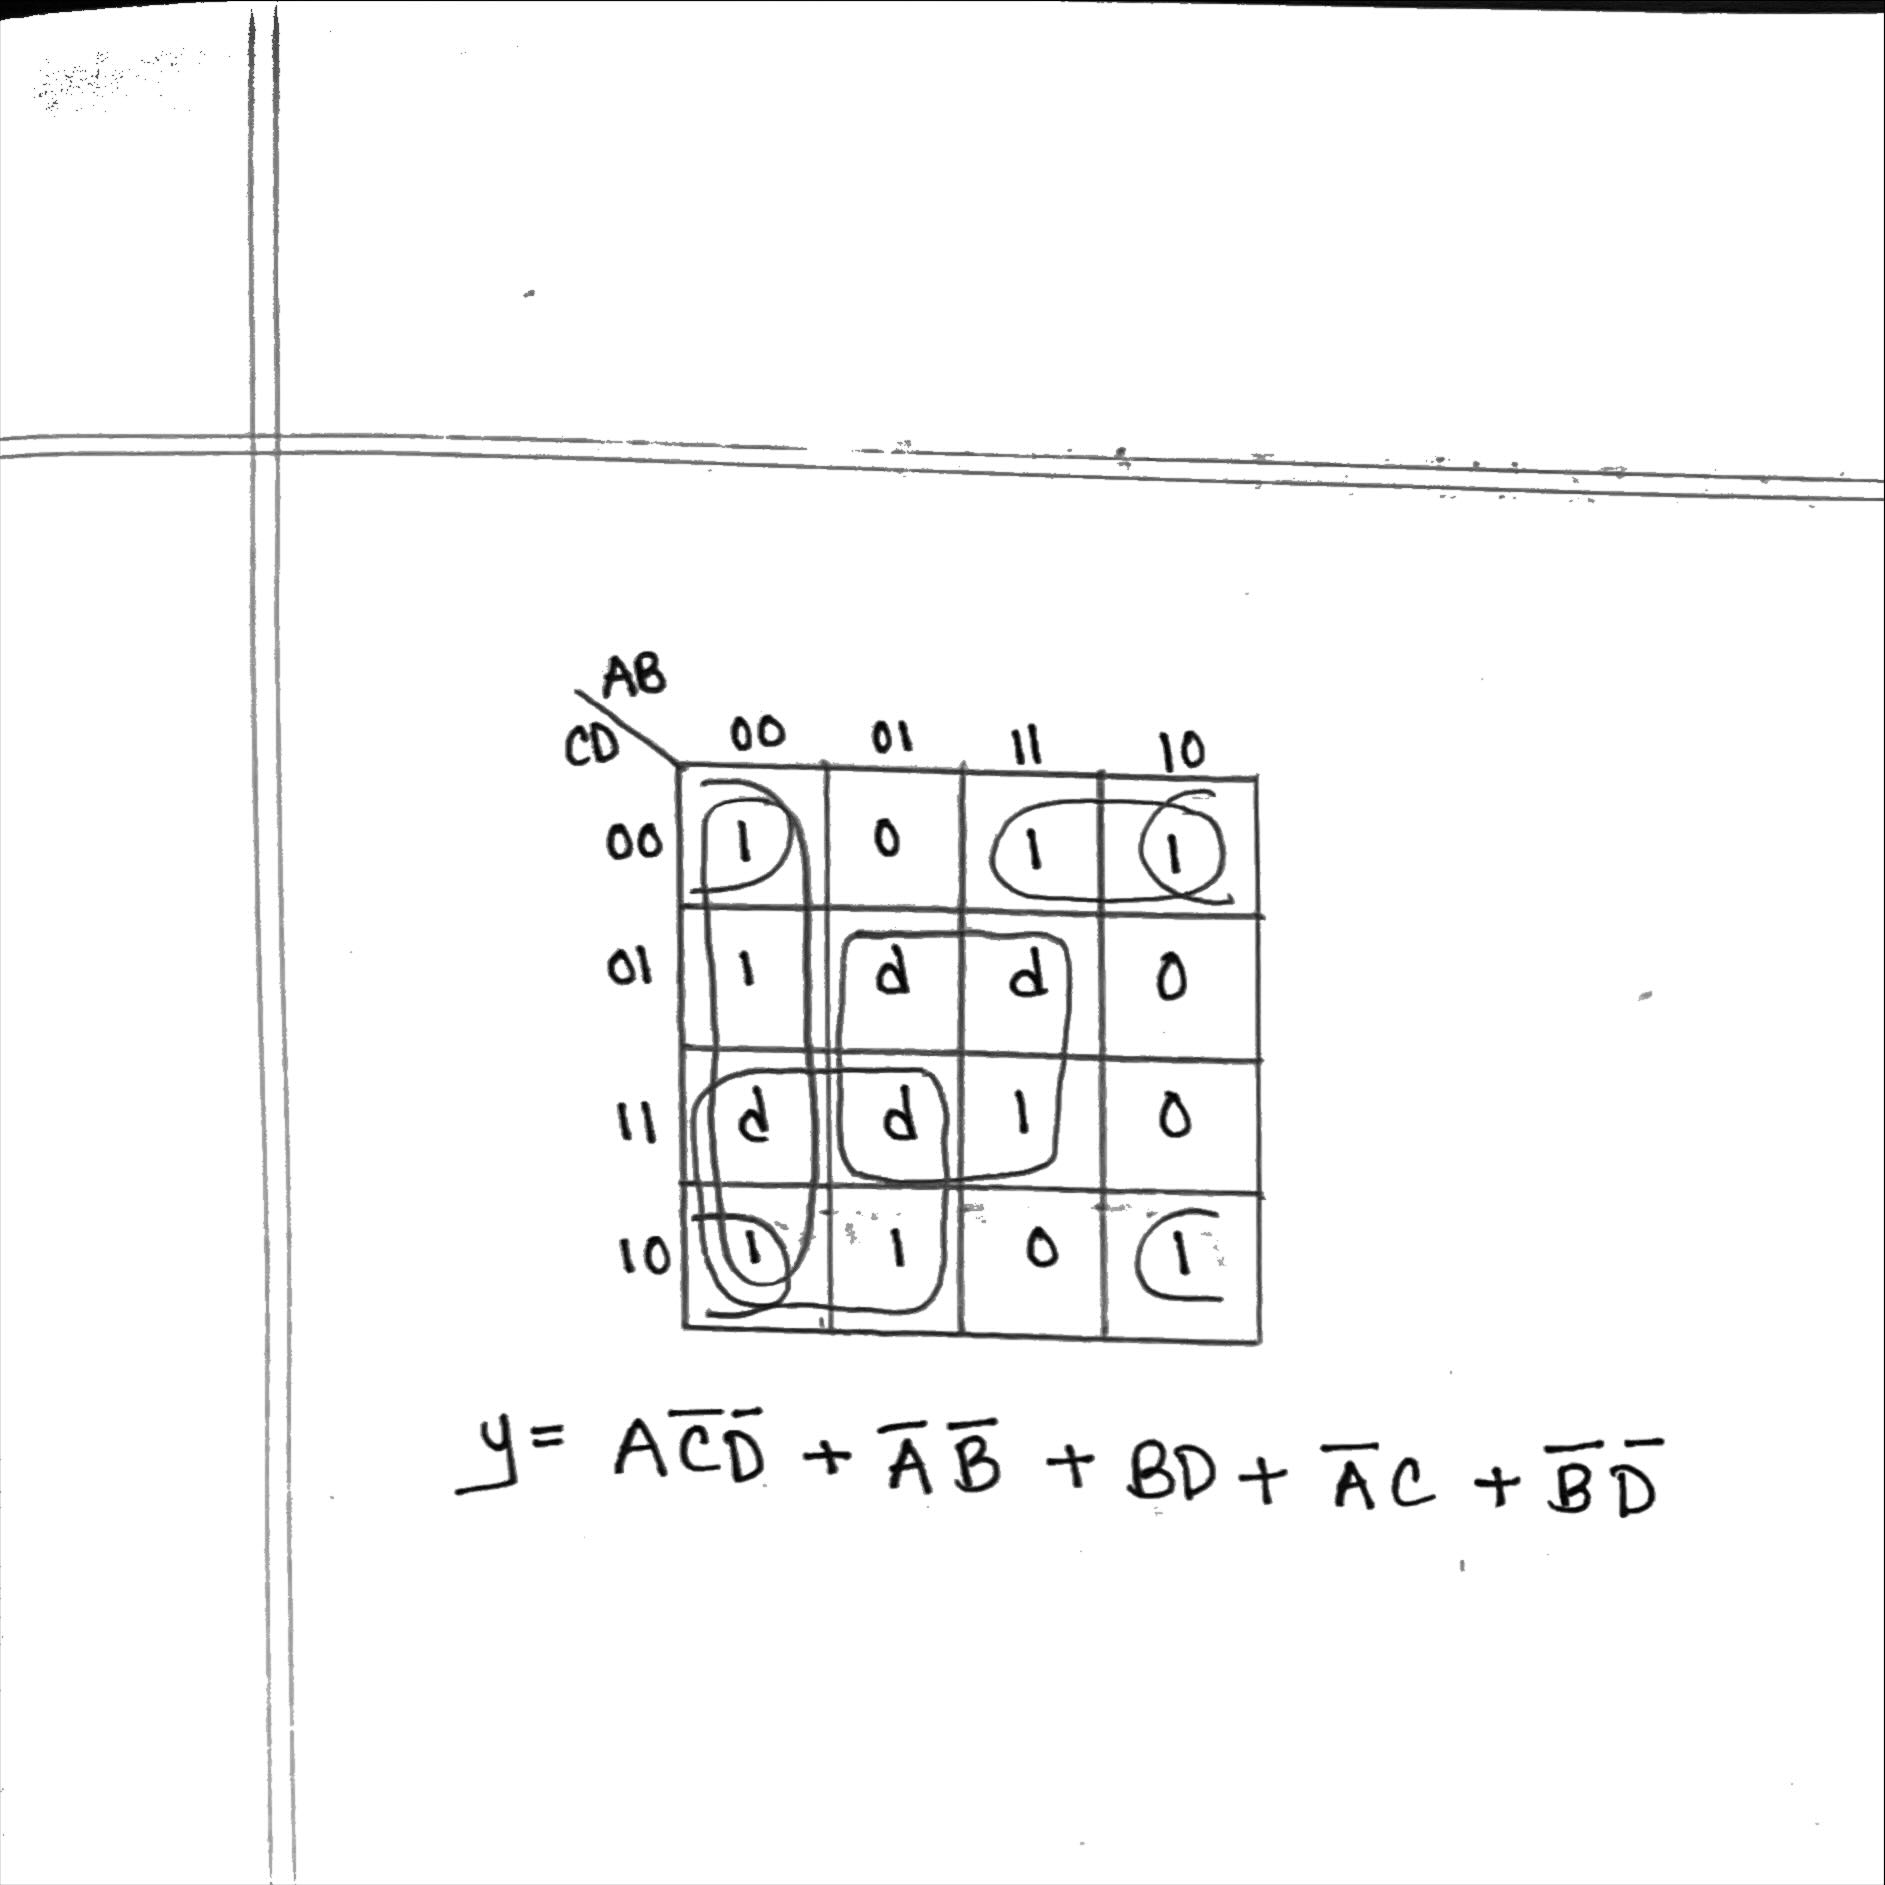 AB
CD 00 01 11 10
00 1 0 1 1
01 1 d d 0
11 d d 1 0
10 1 1 0 1
y = AC̅D̅ + A̅B̅ + BD + A̅C + B̅D̅